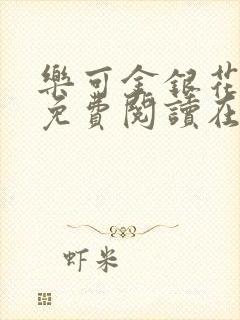 樂可金銀花
免費閱讀在
虾米